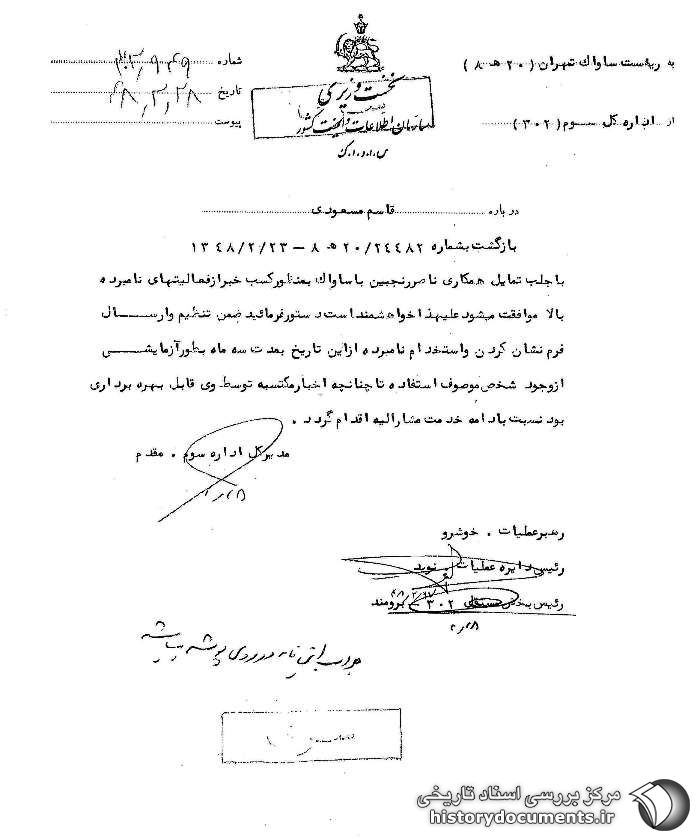 به ریاست ساواک تهران (۲۰ هـ ۸)
از اداره کل سوم (۳۰۲)
نخست وزیری
سازمان اطلاعات و امنیت کشور
س.ا.و.ا.ک
شماره
تاریخ ۴۸٫۳٫۲۸
پیوست
درباره قاسم مسعودی
بازگشت بشماره ۲۰/۲۴۴۸۲ هـ ۸ – ۱۳۴۸/۲/۲۳
با جلب تمایل همکاری ناصر رنجبین با ساواک بمنظور کسب خبر از فعالیتهای نامبرده
بالا موافقت میشود علیهذا خواهشمند است دستور فرمائید ضمن تنظیم و ارسال
فرم نشان کردن و استخدام نامبرده از این تاریخ بمدت سه ماه بطور آزمایشی
از وجود شخص موصوف استفاده تا چنانچه اخبار مکتسبه توسط وی قابل بهره برداری
بود نسبت بادامه خدمت مشارالیه اقدام گردد .
مدیر کل اداره سوم . مقدم
رهبر عملیات . خوشرو
رئیس دایره عملیات . نوید
رئیس بخش مستقل ۳۰۲ – برومند
مرکز بررسی اسناد تاریخی
historydocuments.ir